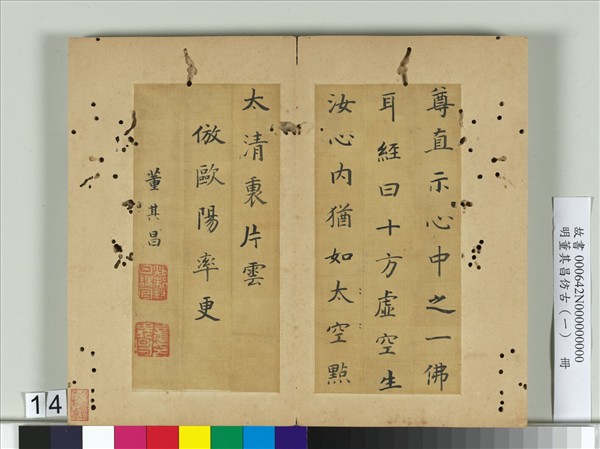 尊直示心中之一佛
耳經曰十方虛空生
汝心內猶如太空點
太清裏片雲
倣歐陽率更
董其昌
故書 000642N000000000
明董其昌仿古（一） 冊
14